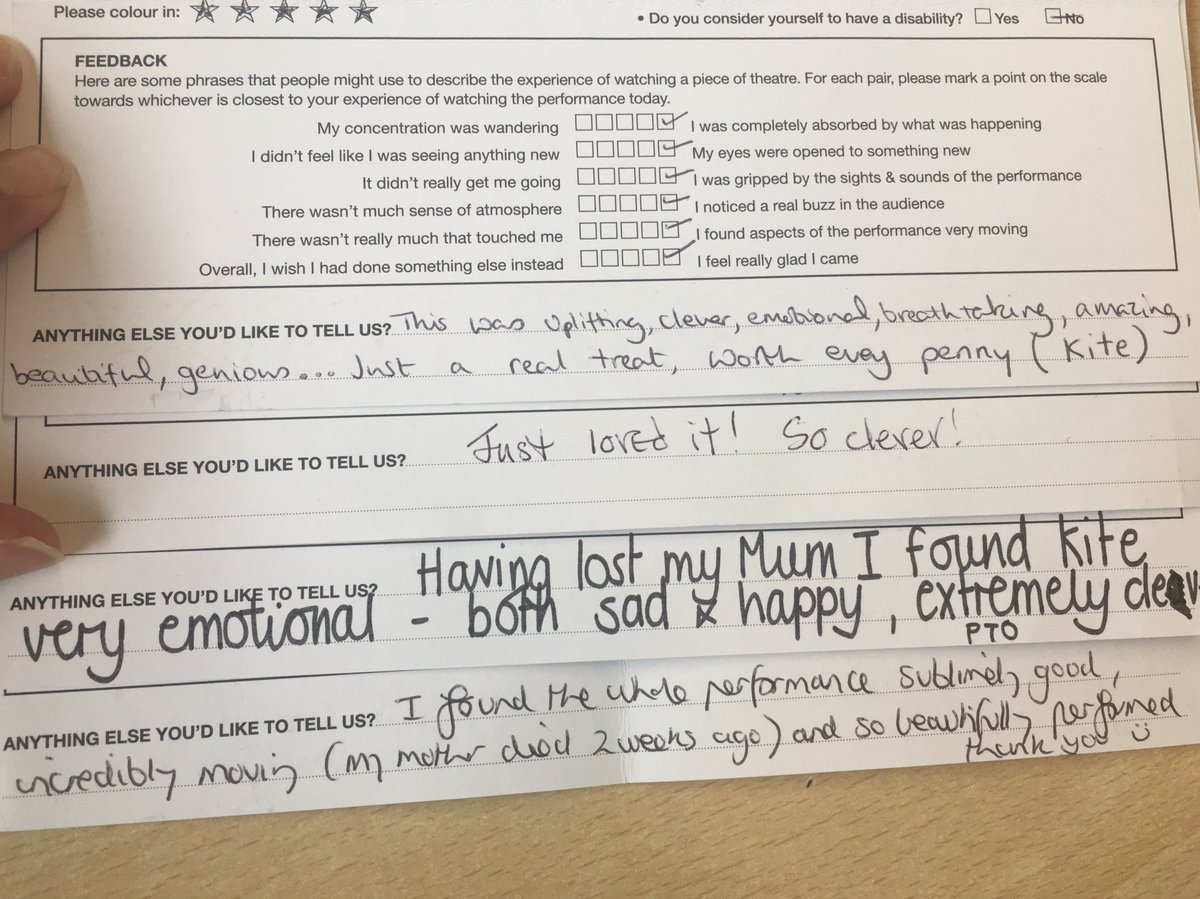 Please colour in:
• Do you consider yourself to have a disability? Yes No
FEEDBACK
Here are some phrases that people might use to describe the experience of watching a piece of theatre. For each pair, please mark a point on the scale
towards whichever is closest to your experience of watching the performance today.
My concentration was wandering I was completely absorbed by what was happening
I didn't feel like I was seeing anything new My eyes were opened to something new
It didn't really get me going I was gripped by the sights & sounds of the performance
There wasn't much sense of atmosphere I noticed a real buzz in the audience
There wasn't really much that touched me I found aspects of the performance very moving
Overall, I wish I had done something else instead I feel really glad I came
ANYTHING ELSE YOU'D LIKE TO TELL US? This was uplifting, clever, emotional, breathtaking, amazing,
beautiful, genious... Just a real treat, worth evey penny (Kite)
ANYTHING ELSE YOU'D LIKE TO TELL US? Just loved it! So clever!
ANYTHING ELSE YOU'D LIKE TO TELL US? Having lost my Mum I found Kite
very emotional - both sad & happy, extremely clev
PTO
ANYTHING ELSE YOU'D LIKE TO TELL US? I found the whole performance sublimely good,
incredibly moving (my mother died 2 weeks ago) and so beautifully performed
thank you